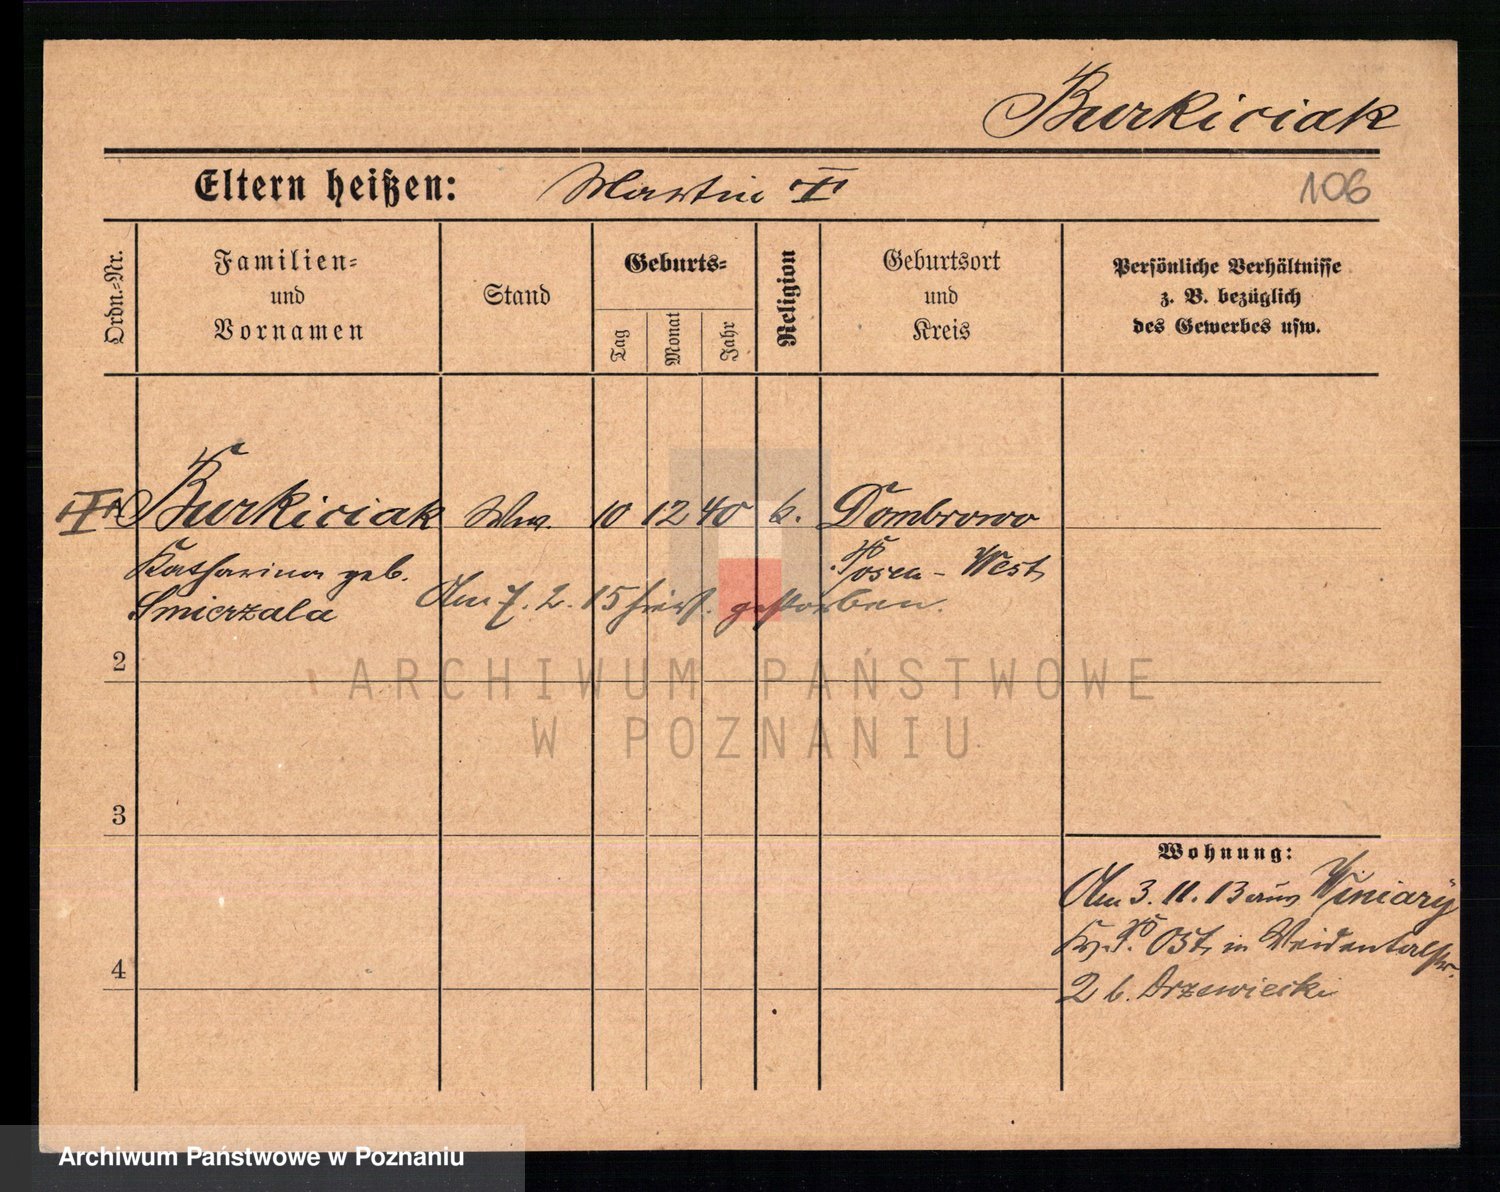 Burkiciak
Eltern heißen: Martin
106
Ordn.-Nr.
Familien-
und
Vornamen
Stand
Geburts-
Tag
Monat
Jahr
Religion
Geburtsort
und
Kreis
Persönliche Verhältnisse
z. B. bezüglich
des Gewerbes usw.
Burkiciak Ww. 10 12 40 k. Dombrowo
Katharina geb. Posen-West
Smierzala Am 7. 2. 15 hier gestorben.
2
ARCHIWUM PAŃSTWOWE
W POZNANIU
3
Wohnung:
Am 3. 11. 13 aus Winiary
Kr. P. Ost, in
4
2 b. Drzewiecki
Archiwum Państwowe w Poznaniu